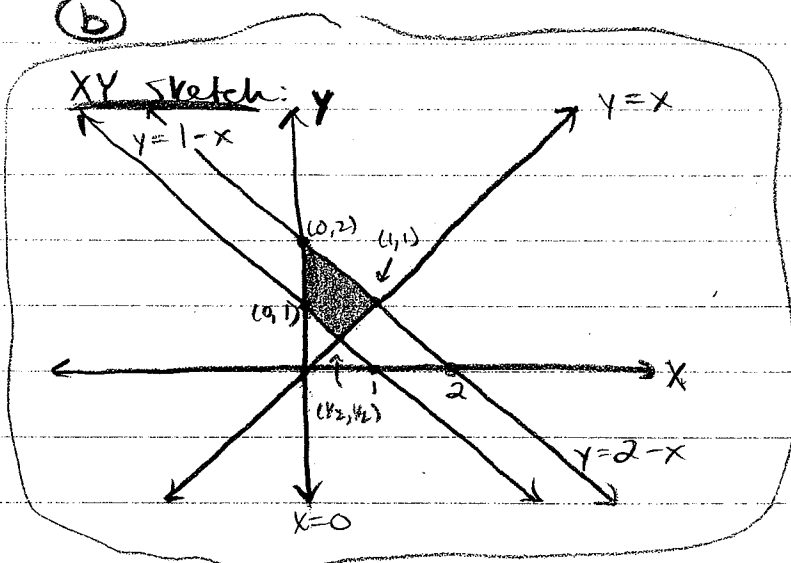 b
XY Sketch:
Y
y=x
y=1-x
(0,2)
(1,1)
(0,1)
X
1
2
(1/2,1/2)
y=2-x
x=0